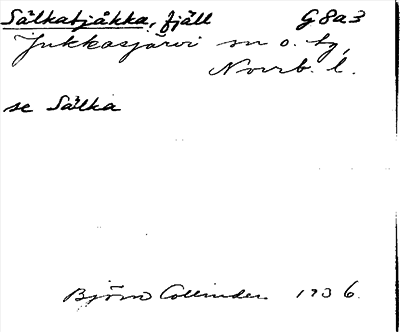 Sälkatjåkka, fjäll G8a3
Jukkasjärvi sn o. tg,
Norrb. l.
se Sälka
Björn Collinder 1936.